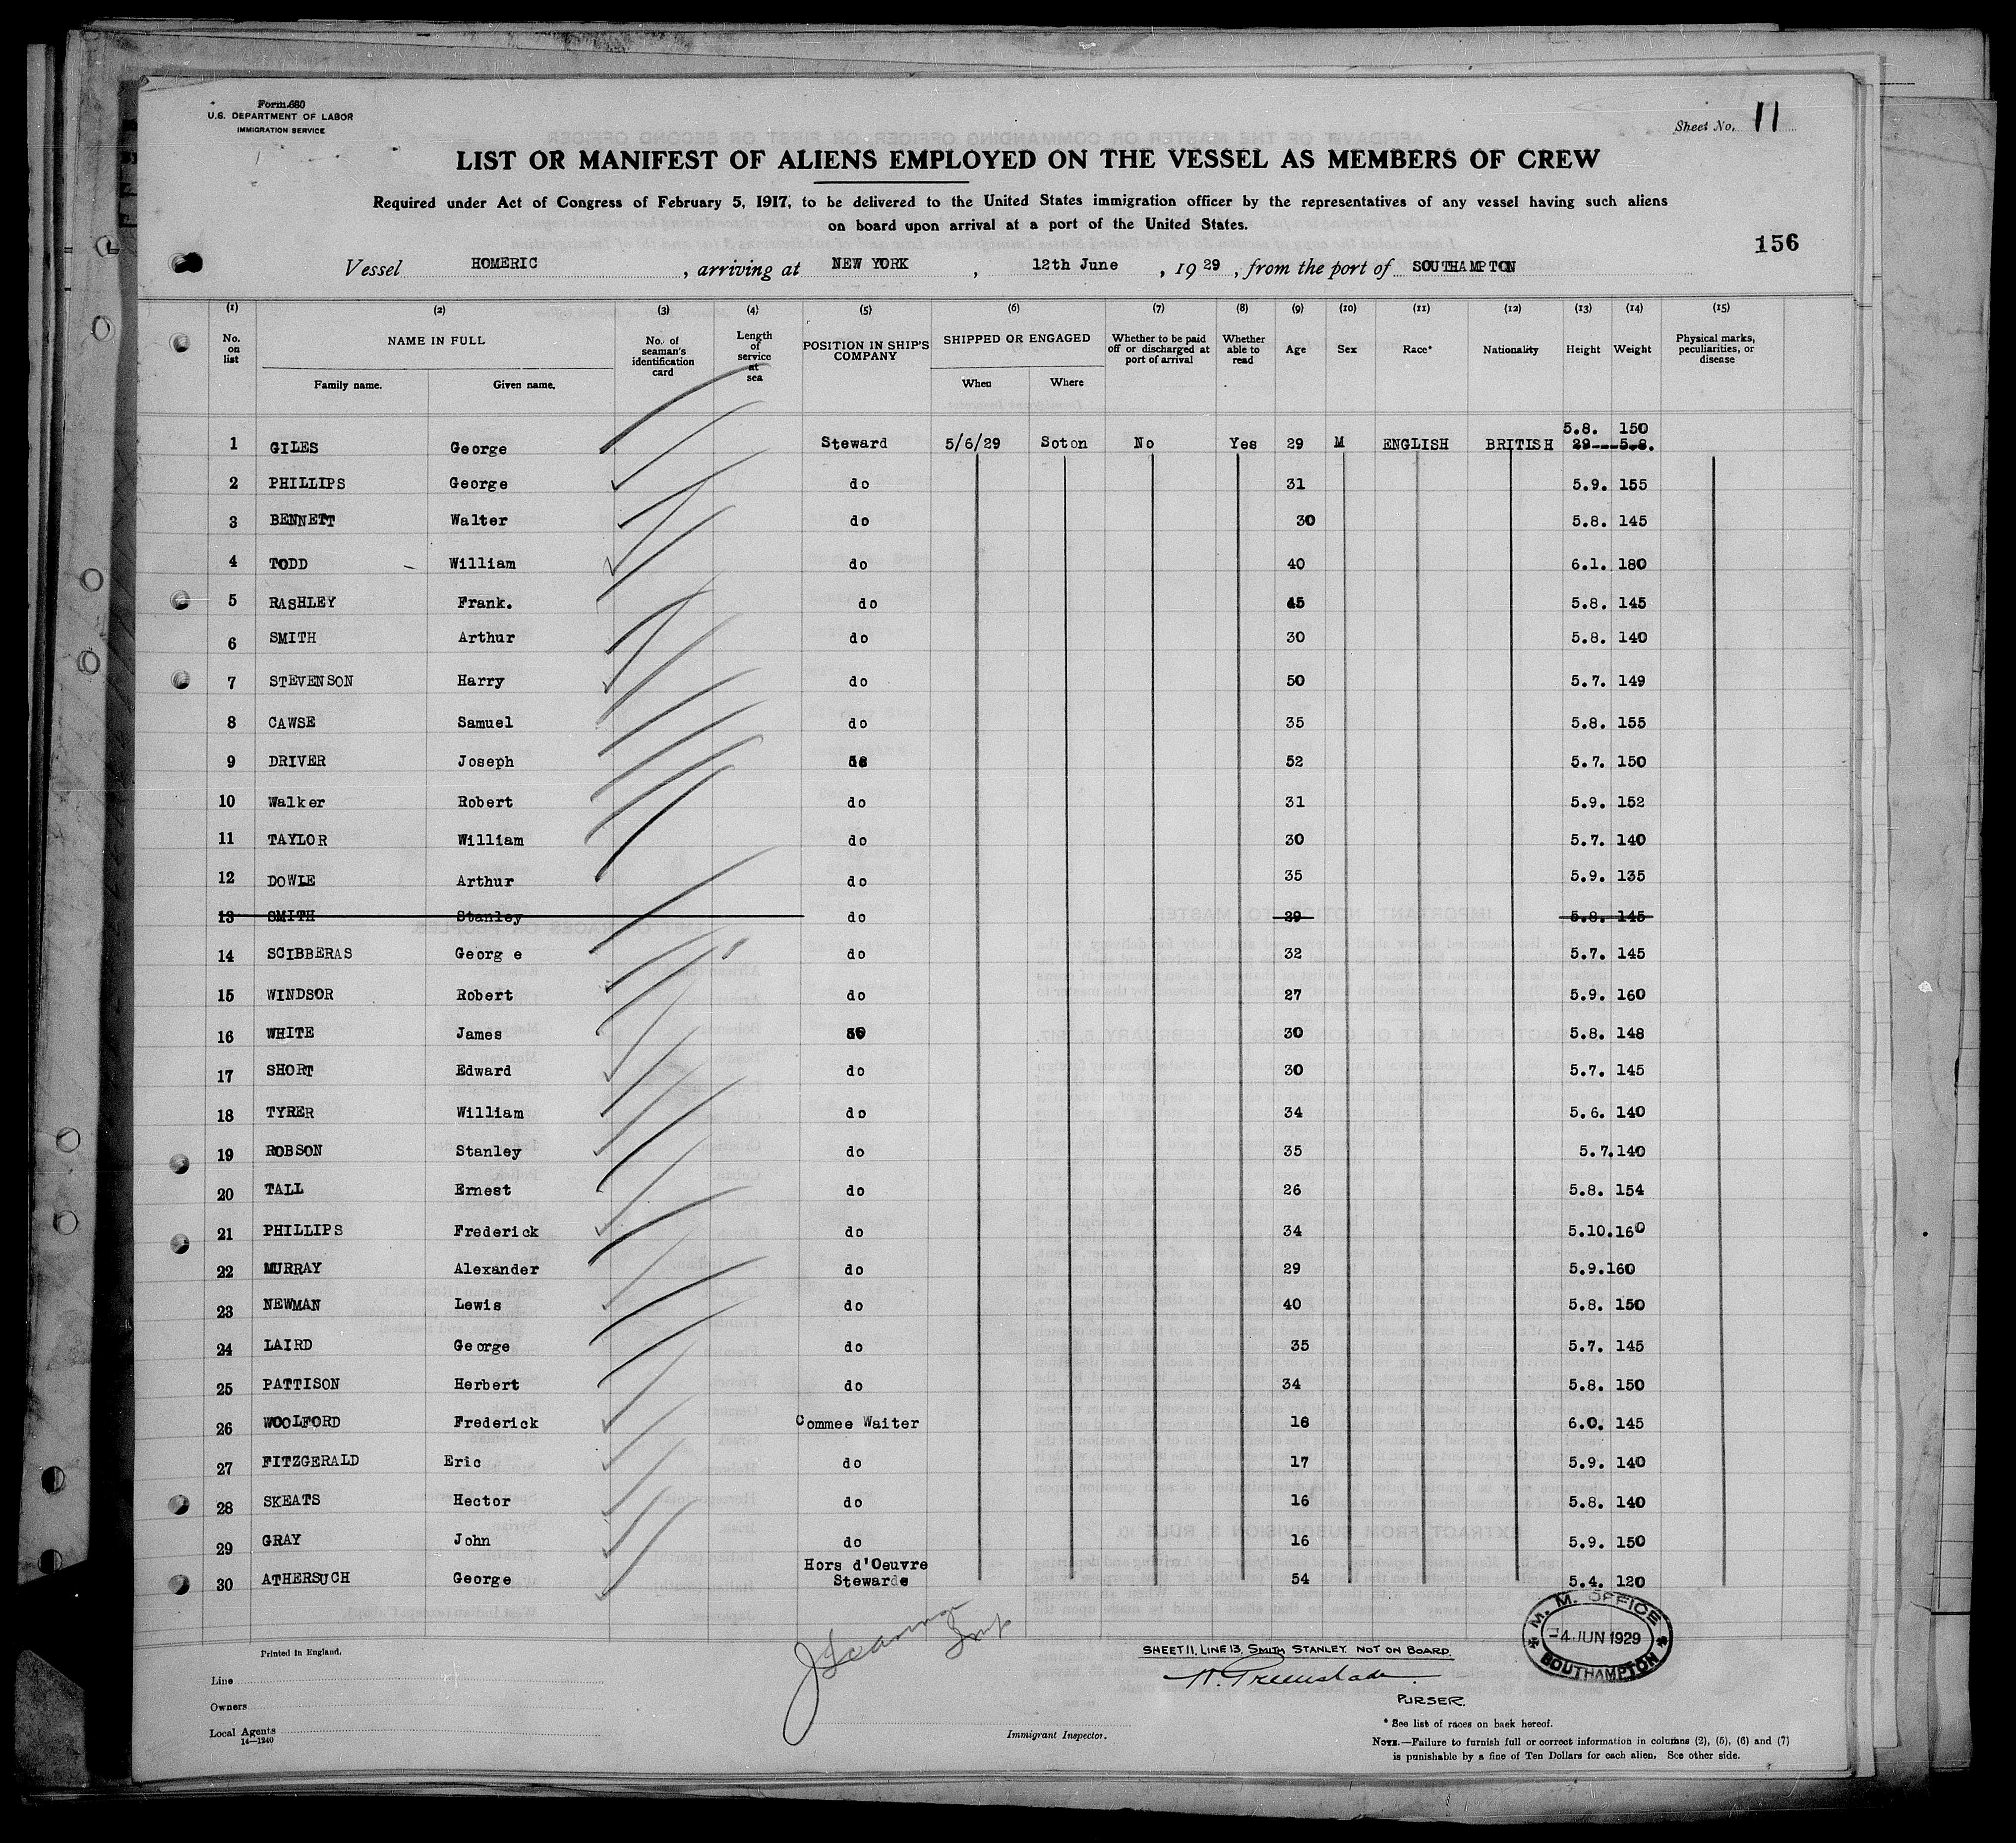 Form 680
U.S. DEPARTMENT OF LABOR
IMMIGRATION SERVICE
Sheet No. 11
LIST OR MANIFEST OF ALIENS EMPLOYED ON THE VESSEL AS MEMBERS OF CREW
Required under Act of Congress of February 5, 1917, to be delivered to the United States immigration officer by the representatives of any vessel having such aliens
on board upon arrival at a port of the United States.
156
Vessel HOMERIC, arriving at NEW YORK, 12th June, 19 29, from the port of SOUTHAMPTON
(1) (2) (3) (4) (5) (6) (7) (8) (9) (10) (11) (12) (13) (14) (15)
No. on list NAME IN FULL Family name. Given name. No. of seaman's identification card Length of service at sea POSITION IN SHIP'S COMPANY SHIPPED OR ENGAGED When Where Whether to be paid off or discharged at port of arrival Whether able to read Age Sex Race* Nationality Height Weight Physical marks, peculiarities, or disease
5.8. 150
1 GILES George Steward 5/6/29 Soton No Yes 29 M ENGLISH BRITISH 29---5.8.
2 PHILLIPS George do 31 5.9. 155
3 BENNETT Walter do 30 5.8. 145
4 TODD William do 40 6.1. 180
5 RASHLEY Frank. do 45 5.8. 145
6 SMITH Arthur do 30 5.8. 140
7 STEVENSON Harry do 50 5.7. 149
8 CAWSE Samuel do 35 5.8. 155
9 DRIVER Joseph do 52 5.7. 150
10 Walker Robert do 31 5.9. 152
11 TAYLOR William do 30 5.7. 140
12 DOWLE Arthur do 35 5.9. 135
13 SMITH Stanley do 29 5.8. 145
14 SCIBBERAS Georg e do 32 5.7. 145
15 WINDSOR Robert do 27 5.9. 160
16 WHITE James do 30 5.8. 148
17 SHORT Edward do 30 5.7. 145
18 TYRER William do 34 5.6. 140
19 ROBSON Stanley do 35 5.7.140
20 TALL Ernest do 26 5.8. 154
21 PHILLIPS Frederick do 34 5.10.160
22 MURRAY Alexander do 29 5.9.160
23 NEWMAN Lewis do 40 5.8. 150
24 LAIRD George do 35 5.7. 145
25 PATTISON Herbert do 34 5.8. 150
26 WOOLFORD Frederick Commee Waiter 18 6.0. 145
27 FITZGERALD Eric do 17 5.9. 140
28 SKEATS Hector do 16 5.8. 140
29 GRAY John do 16 5.9. 150
Hors d'Oeuvre
30 ATHERSUCH George Steward 54 5.4. 120
M. M. OFFICE
-4 JUN 1929
SOUTHAMPTON
Printed in England.
SHEET 11, LINE 13, SMITH STANLEY NOT ON BOARD.
Line
PURSER.
Owners
Local Agents
14—1240
Immigrant Inspector.
* See list of races on back hereof.
NOTE.—Failure to furnish full or correct information in columns (2), (5), (6) and (7)
is punishable by a fine of Ten Dollars for each alien. See other side.